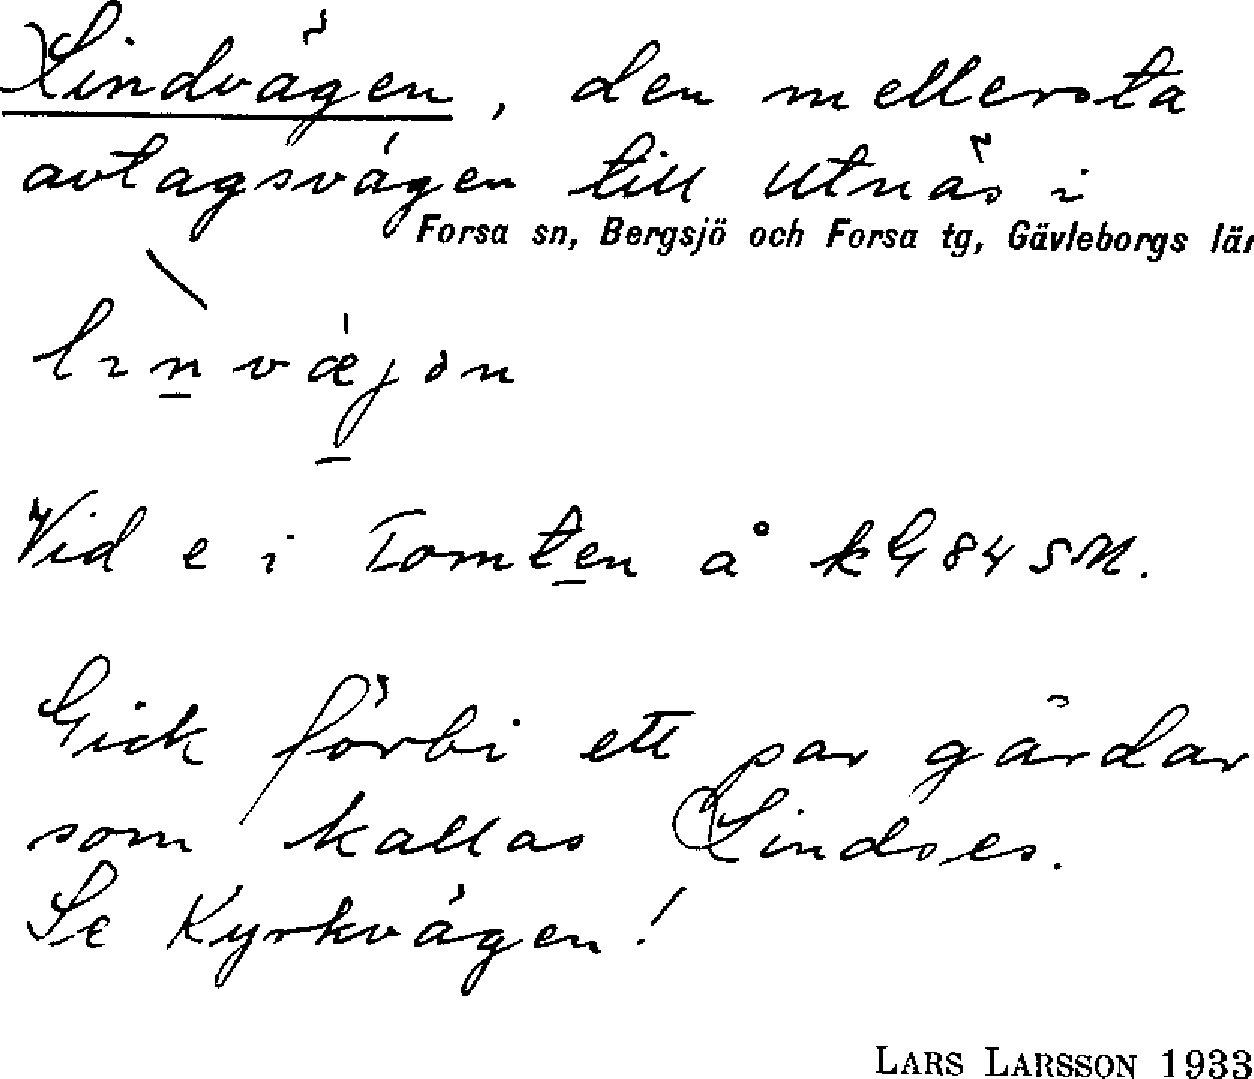 Lindvägen, den mellersta
avtagsvägen till Utnäs i
Forsa sn, Bergsjö och Forsa tg, Gävleborgs län
Vid e i Tomten å kG 84 SM.
Gick förbi ett par gårdar
som kallas Lindses.
Se Kyrkvägen!
LARS LARSSON 1933